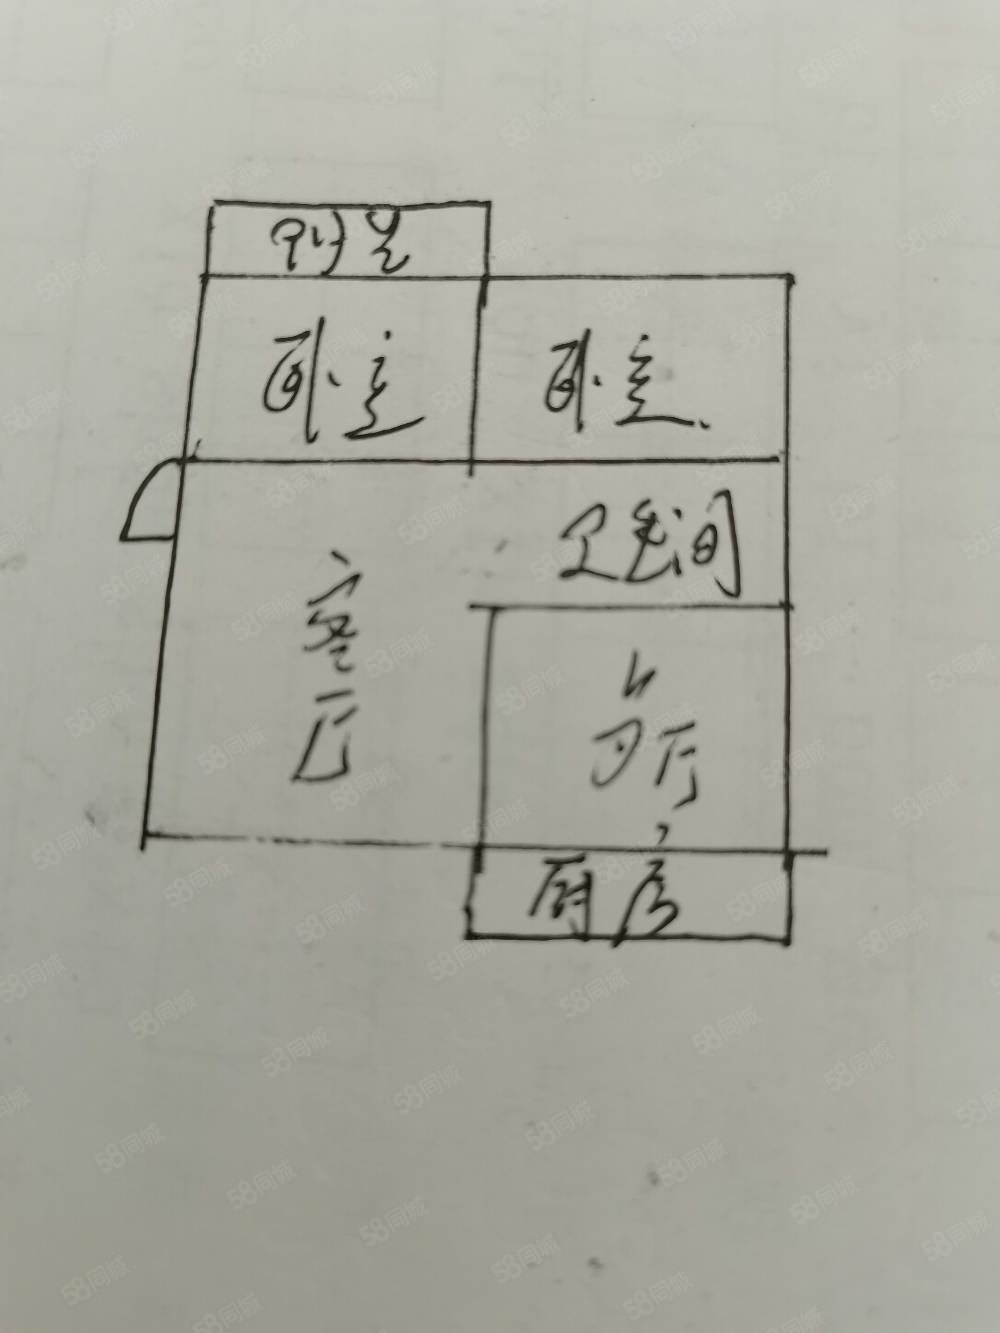 阳台
卧室
卧室
卫生间
客厅
餐厅
厨房
58同城